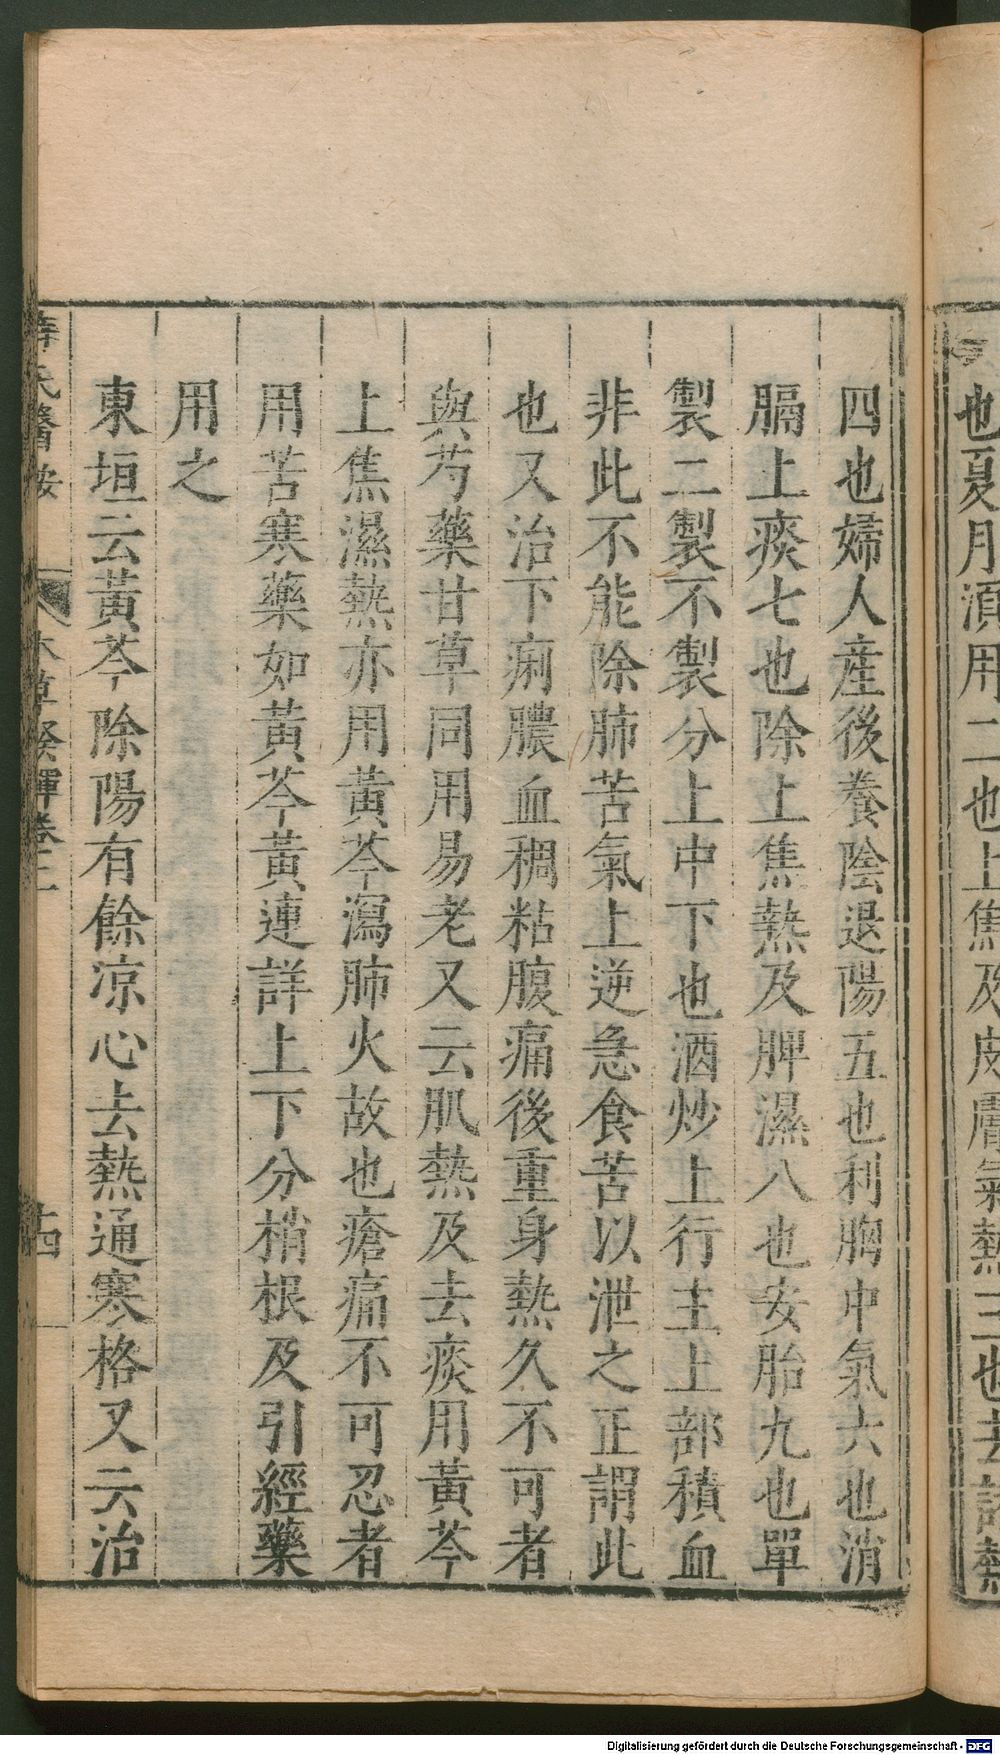 也夏月須用二也上焦及皮膚氣熱三也去諸熱
四也婦人産後養陰退陽五也利胸中氣六也消
膈上痰七也除上焦熱及脾濕八也安胎九也單
製二製不製分上中下也酒炒上行主上部積血
非此不能除肺苦氣上逆急食苦以泄之正謂此
也又治下痢膿血稠粘腹痛後重身熱久不可者
與芍藥甘草同用易老又云肌熱及去痰用黃芩
上焦濕熱亦用黃芩瀉肺火故也瘡痛不可忍者
用苦寒藥如黃芩黃連詳上下分梢根及引經藥
用之
東垣云黃芩除陽有餘凉心去熱通寒格又云治
薛氏醫按 本草發揮卷二 十四
Digitalisierung gefördert durch die Deutsche Forschungsgemeinschaft - DFG